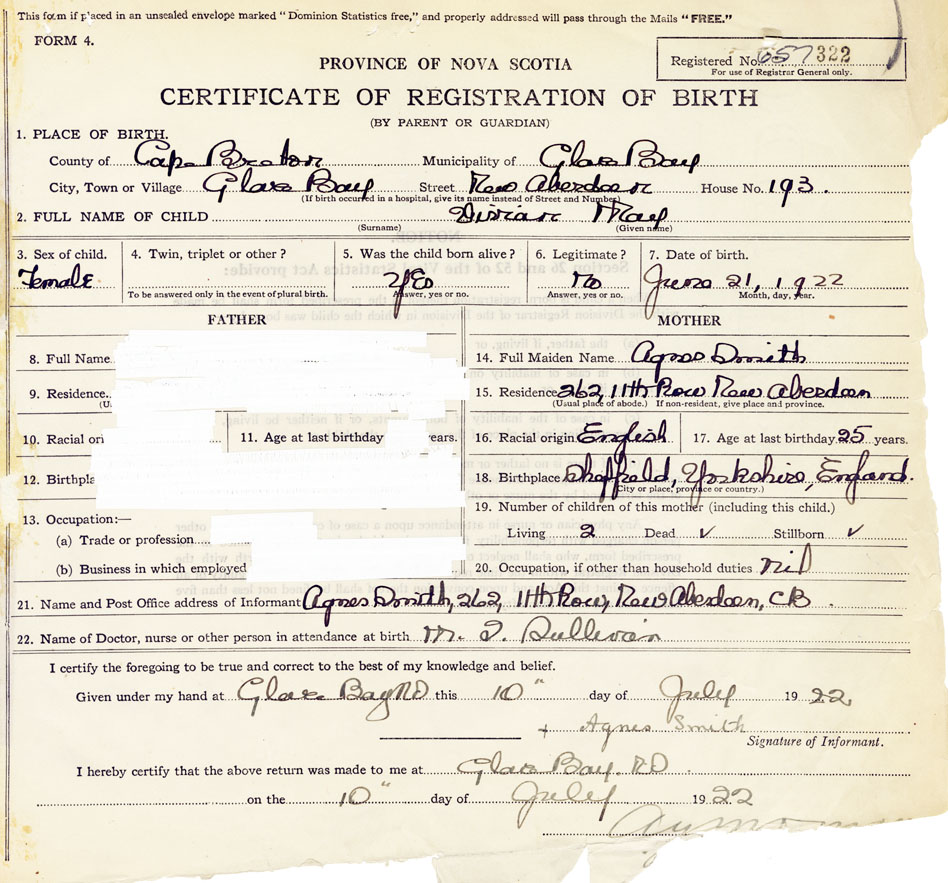 This form if placed in an unsealed envelope marked "Dominion Statistics free," and properly addressed will pass through the Mails "FREE."
FORM 4.
Registered No. 657322
For use of Registrar General only.
PROVINCE OF NOVA SCOTIA
CERTIFICATE OF REGISTRATION OF BIRTH
(BY PARENT OR GUARDIAN)
1. PLACE OF BIRTH.
County of Cape Breton Municipality of Glace Bay
City, Town or Village Glace Bay Street New Aberdeen House No. 193.
(If birth occurred in a hospital, give its name instead of Street and Number)
2. FULL NAME OF CHILD Vivian May
(Surname) (Given name)
3. Sex of child. 4. Twin, triplet or other? 5. Was the child born alive? 6. Legitimate? 7. Date of birth.
Female yes No June 21, 1922
To be answered only in the event of plural birth. Answer, yes or no. Answer, yes or no. Month, day, year.
FATHER MOTHER
8. Full Name 14. Full Maiden Name Agnes Smith
9. Residence. 15. Residence 262, 11th Row New Aberdeen
(Usual place of abode.) If non-resident, give place and province.
10. Racial ori 11. Age at last birthday years. 16. Racial origin English 17. Age at last birthday 25 years.
12. Birthpla 18. Birthplace Sheffield, Yorkshire, England.
(City or place, province or country.)
13. Occupation:— 19. Number of children of this mother (including this child.)
(a) Trade or profession Living 2 Dead ✓ Stillborn ✓
(b) Business in which employed 20. Occupation, if other than household duties nil
21. Name and Post Office address of Informant Agnes Smith, 262, 11th Row, New Aberdeen, CB.
22. Name of Doctor, nurse or other person in attendance at birth M. T. Sullivan
I certify the foregoing to be true and correct to the best of my knowledge and belief.
Given under my hand at Glace Bay RD this 10" day of July 1922.
+ Agnes Smith
Signature of Informant.
I hereby certify that the above return was made to me at Glace Bay. RD.
on the 10" day of July 1922